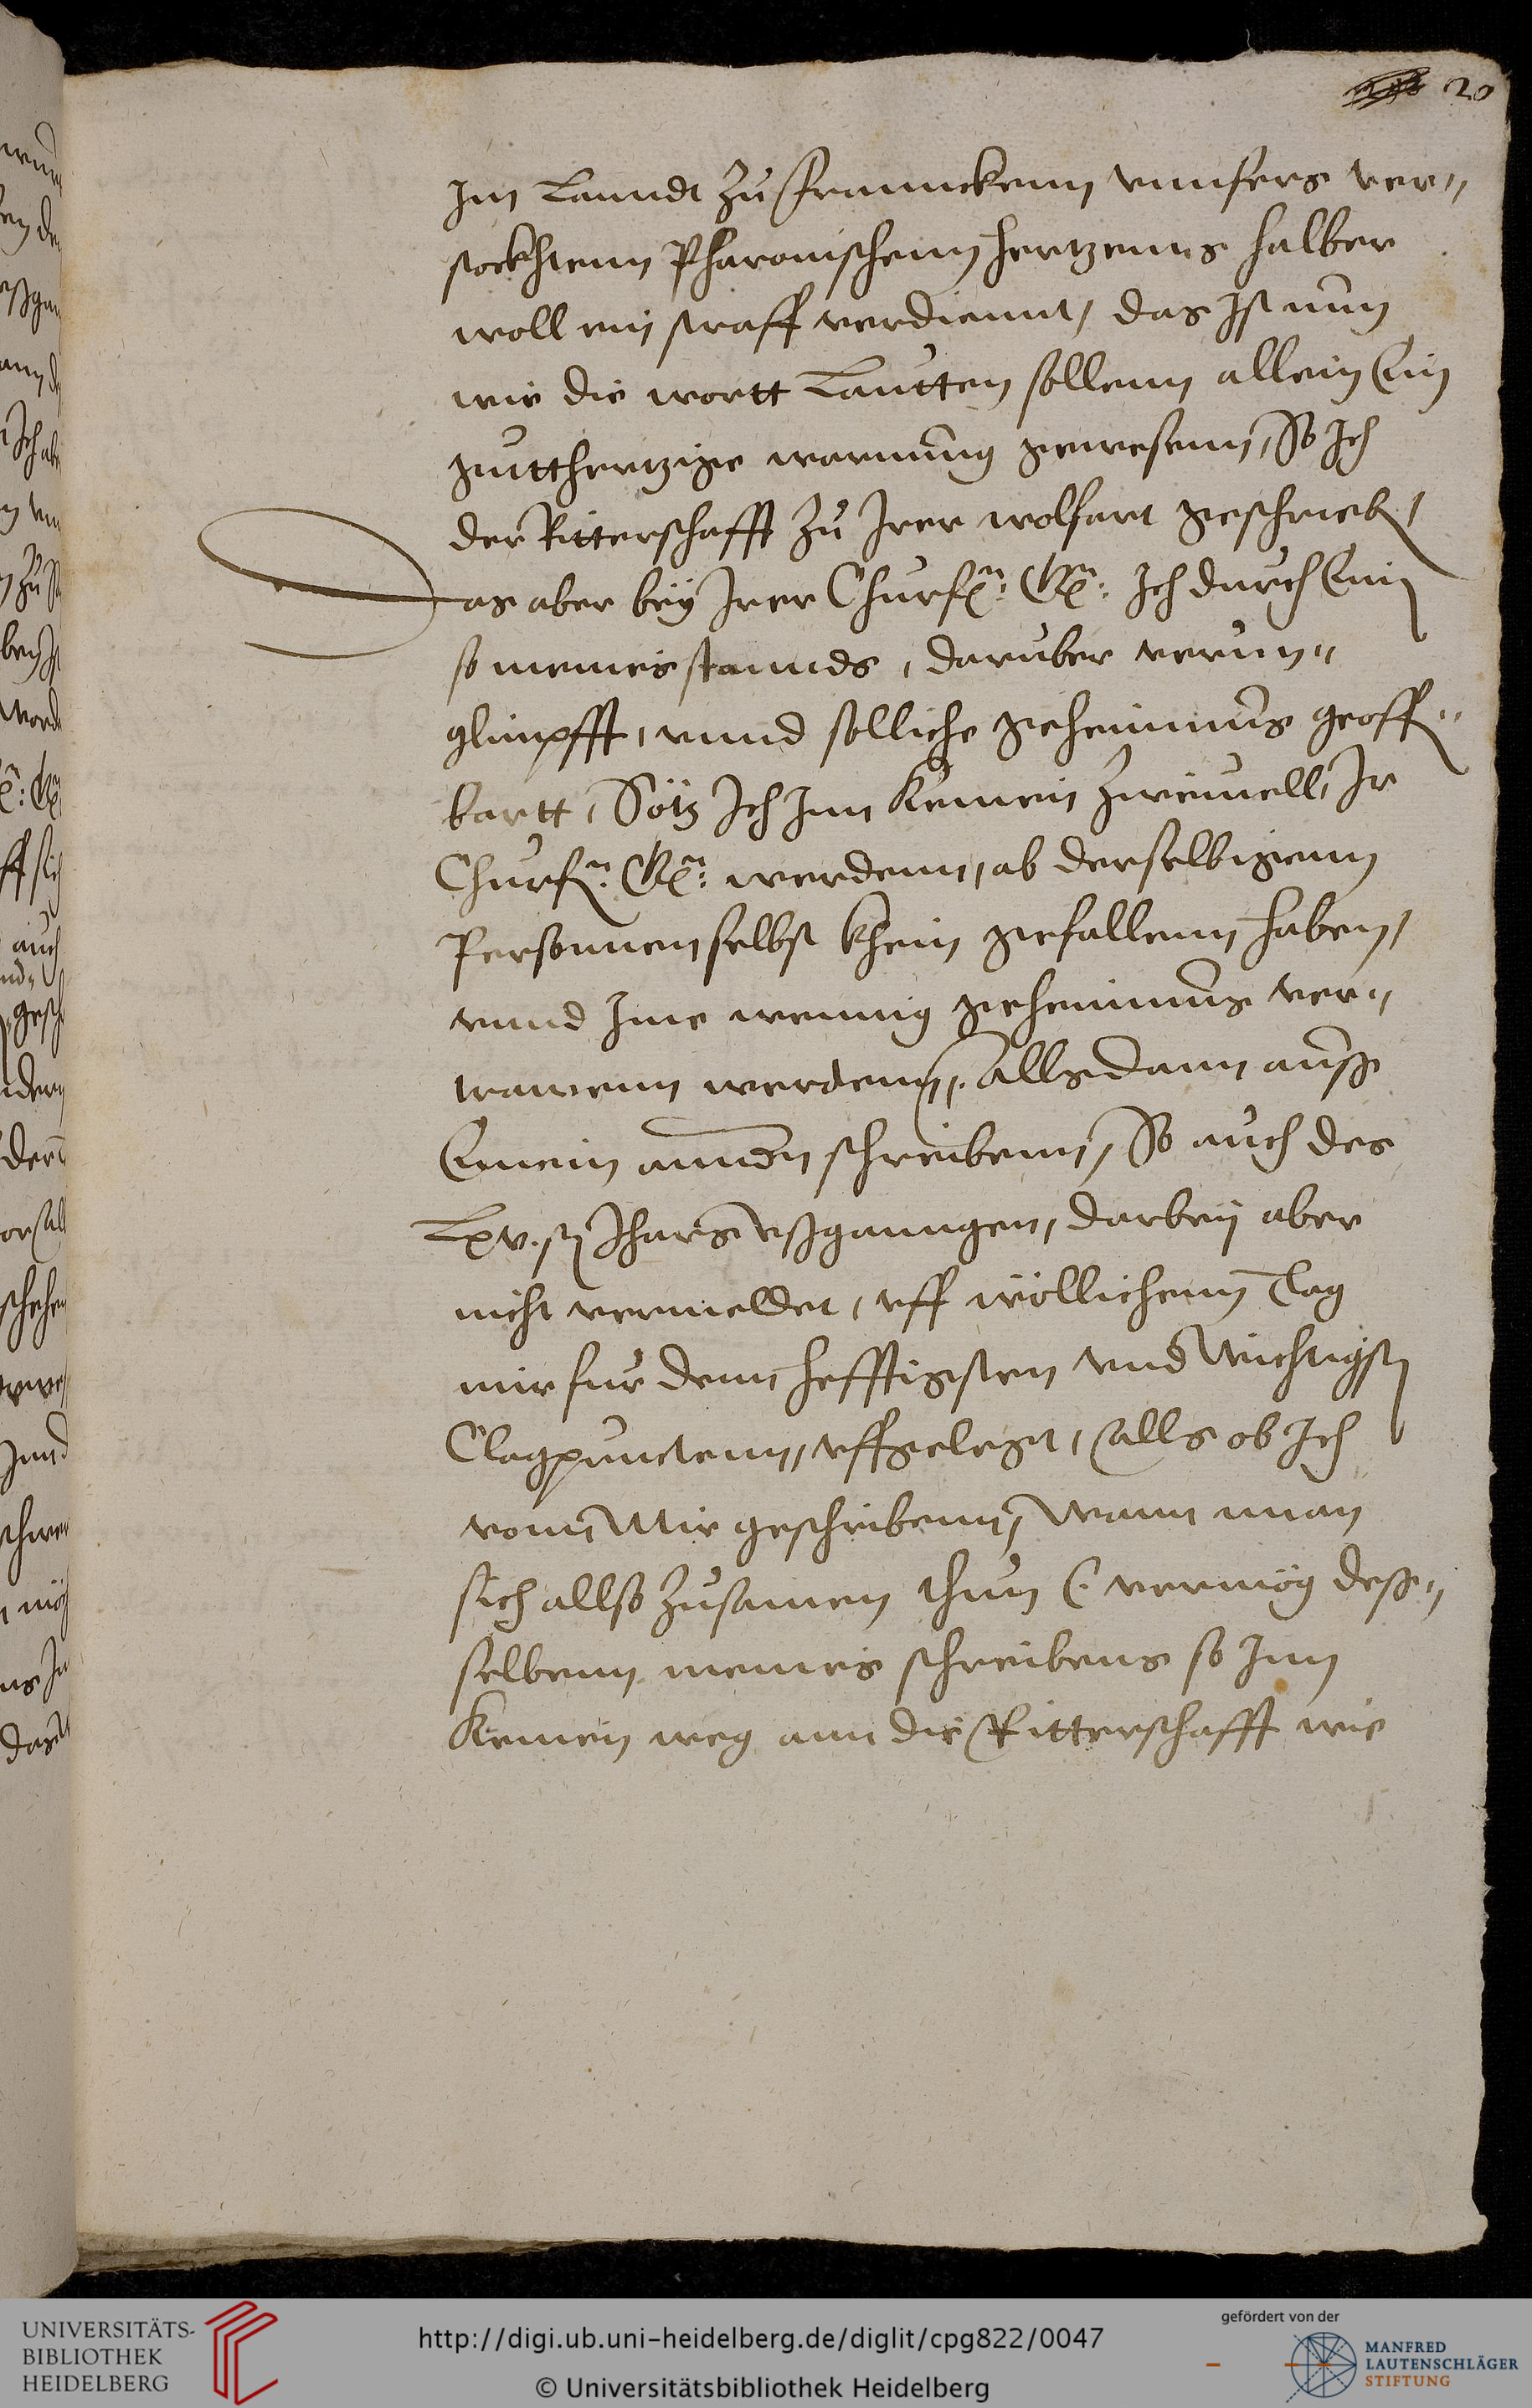 20
Im Lanndt zu Frannckenn vnnsers ver„
stockhtenn Pharonischenn hertzenns halber
woll ein straff verdiennt, das Ist nun
wie die wortt Lautten sollenn allein Ein
gutthertzige warnung gewesenn, So Ich
der Ritterschafft zu Irer wolfart geschrieben,
Das aber bey Irer Churf: G: Ich durch Ein
so meines stannds, daruber verun„
glimpfft, vnnd solliche geheimnus geoffen„
bartt, Sötz Ich Inn Keinen zweiuell, Ir
Churf: G: werdenn, ab derselbigenn
Personnen selbst khein gefallenn haben,
vnnd Ime wennig geheimnus ver„
trawenn werdenn, Allsdann auss
Einem anndern schreibenn, So auch des
Lxv.ten Jhars vssganngen, darbey aber
nicht vermeldet, vff wöllichenn Tag
mir fur denn hefftigsten vnd wichtigsten
Clagpunctenn, vffgelegt, Alls ob Ich
vonn Mir geschribenn, Wann man
sich allso zusamen thun (vermög dess„
selbenn meines schreibens so Inn
Keinen weg ann die Ritterschafft wie
UNIVERSITÄTS-
BIBLIOTHEK
HEIDELBERG
http://digi.ub.uni-heidelberg.de/diglit/cpg822/0047
© Universitätsbibliothek Heidelberg
gefördert von der
MANFRED
LAUTENSCHLÄGER
STIFTUNG